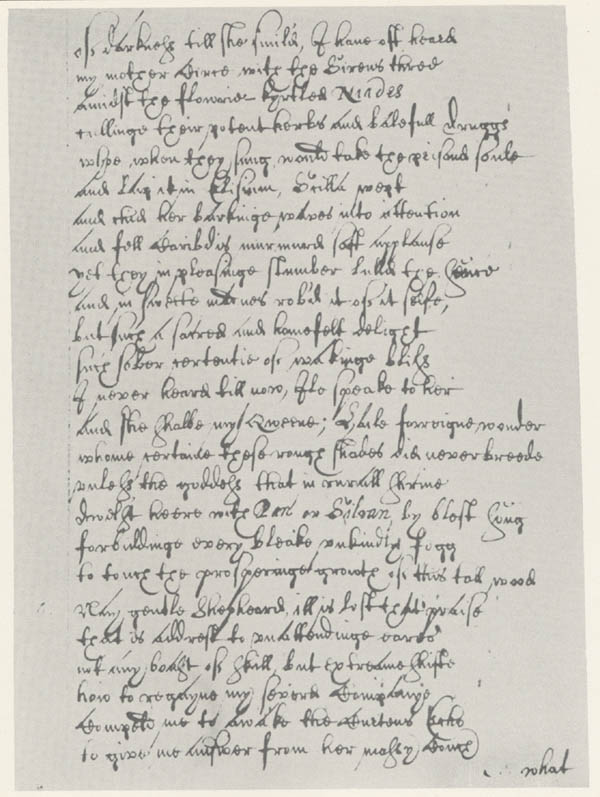 of darknesse till she smil'd, I have oft heard
my mother Circe with the Sirens three
amidst the flowrie kyrtled Niades
cullinge their potent herbs and balefull druggs
whoe, when they sung, would take the prisond soule
and lap it in Elisium, Scilla wept
and chid her barkinge waves into attention
and fell Caribdis murmurd soft applause
yet they in pleasinge slumber lulld the sence
and in sweete madnes rob'd it of it selfe,
but such a sacred and homefelt delight
such sober certentie of wakinge blisse
I never heard till now, Ile speake to her
and she shalbe my Qweene; Haile forreigne wonder
whome certaine these rough shades did never breede
unlesse the goddesse that in rurall shrine
dwell'st heere with Pan or Silvan, by blest song
forbiddinge every bleake unkindly fogg
to touch the prosperinge growth of this tall wood
Nay gentle Shepheard, ill is lost that praise
that is addrest to unattendinge eares
not any boast of skill, but extreame shifte
how to regayne my severd companye
compeld me to awake the Curteous Ecko
to give me answer from her mossy Couch
what